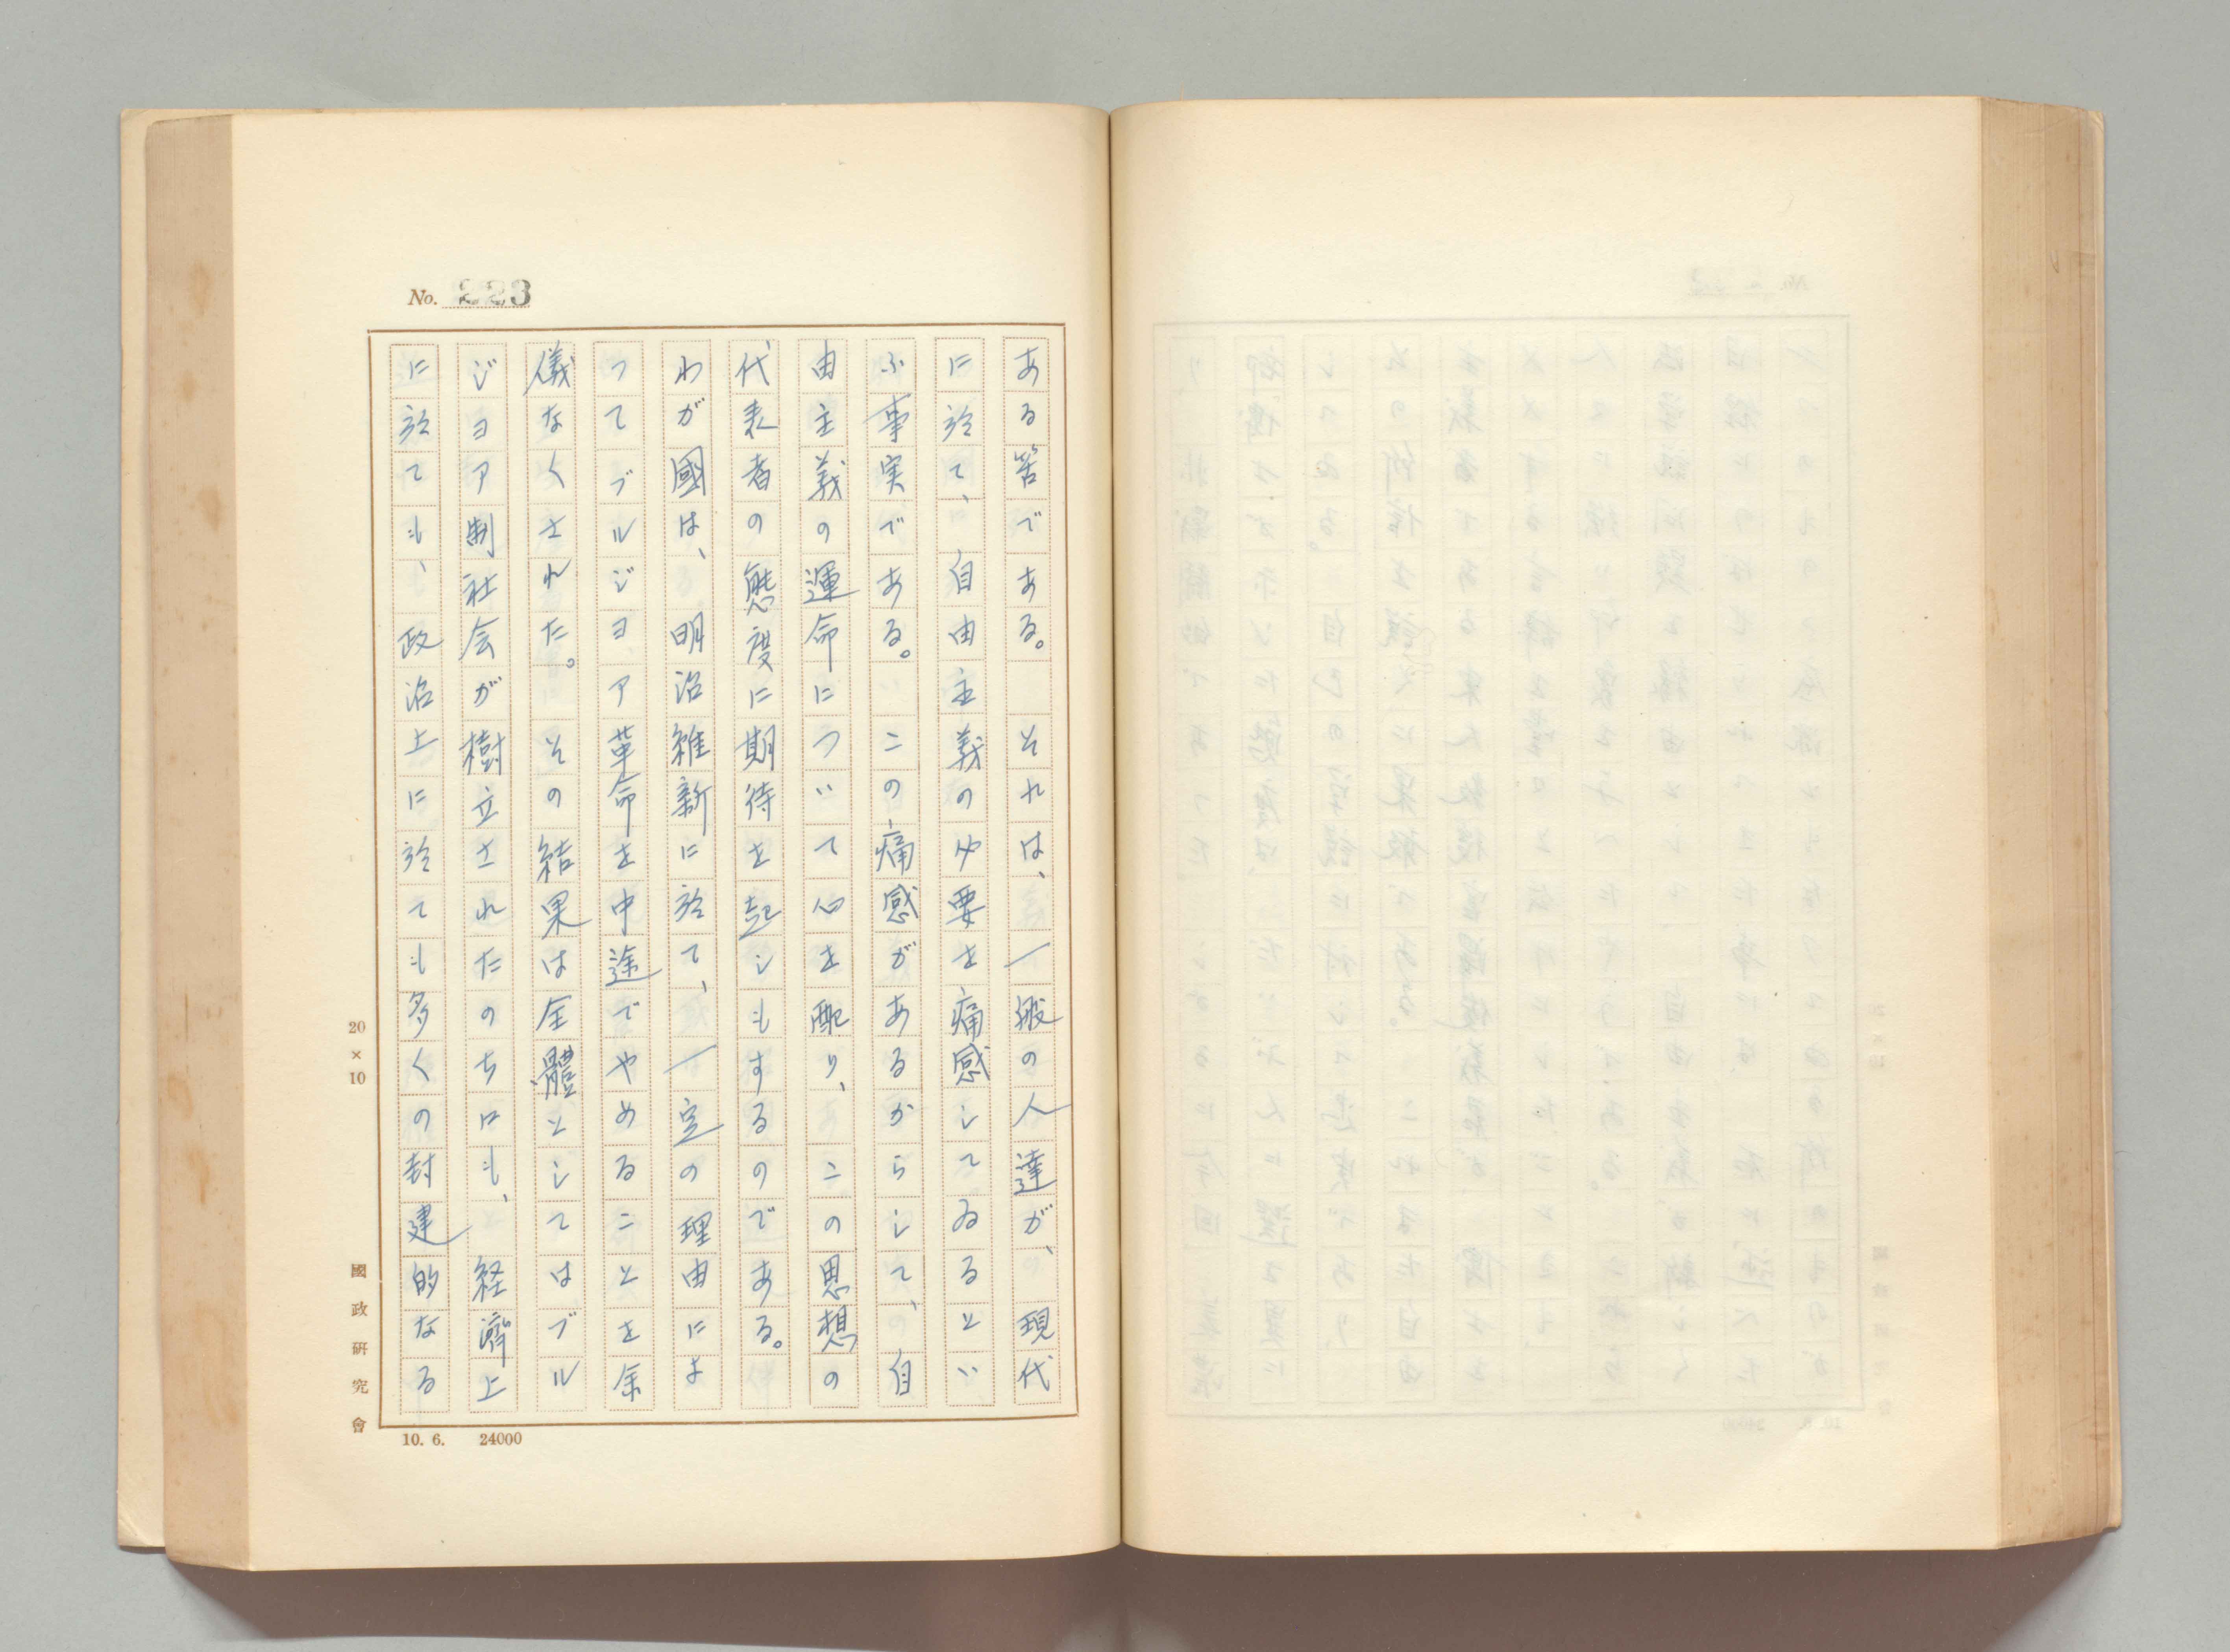 No. 223
ある筈である。　それは、一般の人達が、現代
に於て、自由主義の必要を痛感してゐるとい
ふ事実である。　この痛感があるからして、自
由主義の運命について心を配り、この思想の
代表者の態度に期待を起しもするのである。
わが國は、明治維新に於て、一定の理由によ
つてブルジヨア革命を中途でやめることを余
儀なくされた。　その結果は全體としてはブル
ジヨア制社会が樹立されたのちにも、経濟上
に於ても、政治上に於ても多くの封建的なる
20×10
國政硏究會
10. 6.　24000